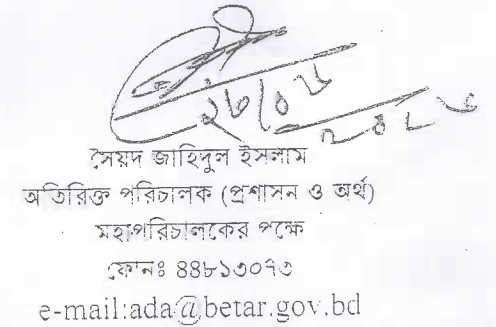 সৈয়দ জাহিদুল ইসলাম
অতিরিক্ত পরিচালক (প্রশাসন ও অর্থ)
মহাপরিচালকের পক্ষে
ফোনঃ ৪৪৮১৩০৭৩
e-mail:ada@betar.gov.bd